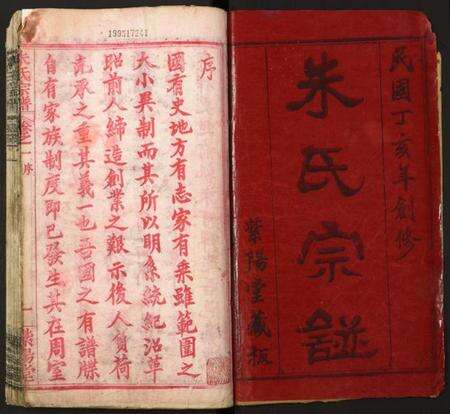 民國丁亥年創修
朱氏宗譜
紫陽堂藏板
199517241
序
國有史地方有志家有乘雖範圍之
大小異制而其所以明系統紀沿革
昭前人締造創業之艱示後人負荷
克承之重其義一也吾國之有譜牒
自有家族制度即已發生其在周室
朱氏宗譜 卷之一 序 一 紫陽堂